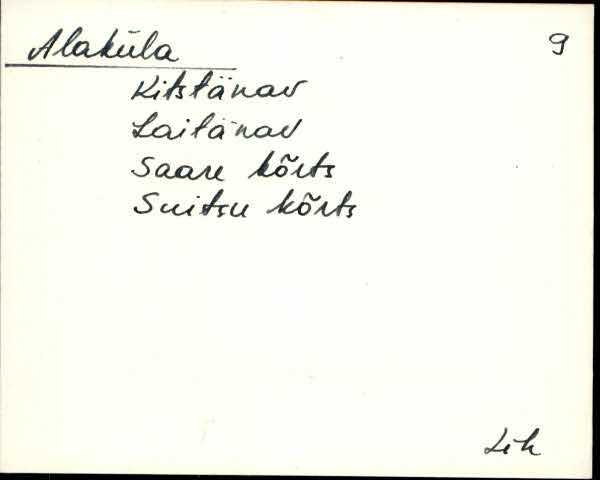 Alaküla 9
Kitstänav
Laitänav
Saare kõrts
Suitsu kõrts
Lih